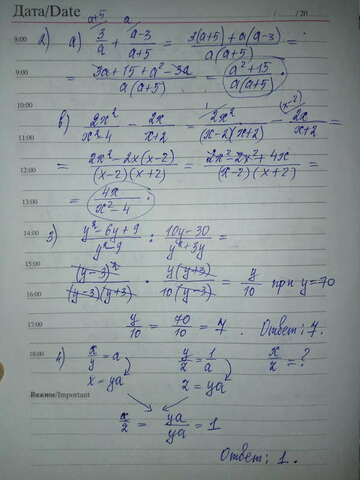 Дата/Date / /20
a+5 a
8:00 2) а) 3/a + a-3/a+5 = 3(a+5)+a(a-3)/a(a+5) =
9:00 = 3a+15+a²-3a/a(a+5) = a²+15/a(a+5).
10:00 1 (x-2)
11:00 в) 2x²/x²-4 - 2x/x+2 = 2x²/(x-2)(x+2) - 2x/x+2 =
12:00 = 2x²-2x(x-2)/(x-2)(x+2) = 2x²-2x²+4x/(x-2)(x+2) =
13:00 = 4x/x²-4.
14:00 3) y²-6y+9/y²-9 : 10y-30/y²+3y =
15:00 (y-3)²/(y-3)(y+3) · y(y+3)/10(y-3) = y/10 при y=70
17:00 y/10 = 70/10 = 7. Ответ: 7.
18:00 4) x/y = a y/2 = 1/a x/2 = ?
x = ya 2 = ya
Важно/Important
x/2 = ya/ya = 1
Ответ: 1.